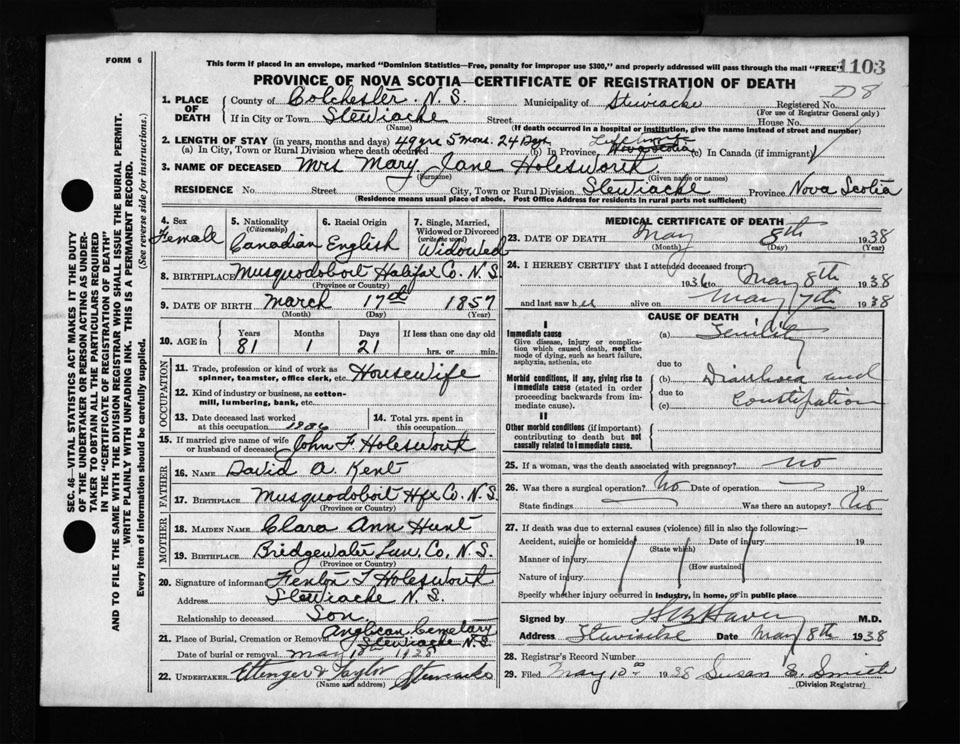 FORM 6
This form if placed in an envelope, marked "Dominion Statistics—Free, penalty for improper use $300," and properly addressed will pass through the mail "FREE"
1103
PROVINCE OF NOVA SCOTIA—CERTIFICATE OF REGISTRATION OF DEATH
D8
1. PLACE OF DEATH
County of Colchester. N.S. Municipality of Stewiacke Registered No.
(For use of Registrar General only)
If in City or Town Stewiacke Street House No.
(Name) (If death occurred in a hospital or institution, give the name instead of street and number)
2. LENGTH OF STAY (in years, months and days) 49 yrs 5 mons. 24 Dys Life
(a) In City, Town or Rural Division where death occurred (b) In Province (c) In Canada (if immigrant)
3. NAME OF DECEASED Mrs Mary Jane Holesworth
(Surname) (Given name or names)
RESIDENCE No. Street City, Town or Rural Division Stewiacke Province Nova Scotia
(Residence means usual place of abode. Post Office Address for residents in rural parts not sufficient)
4. Sex Female
5. Nationality (Citizenship) Canadian
6. Racial Origin English
7. Single, Married, Widowed or Divorced (write the word) Widowed
8. BIRTHPLACE Musquodoboit Halifax Co. N.S.
(Province or Country)
9. DATE OF BIRTH March 17th 1857
(Month) (Day) (Year)
10. AGE in Years Months Days If less than one day old
81 1 21 hrs. or min.
OCCUPATION
11. Trade, profession or kind of work as spinner, teamster, office clerk, etc. Housewife
12. Kind of industry or business, as cotton-mill, lumbering, bank, etc.
13. Date deceased last worked at this occupation 1936
14. Total yrs. spent in this occupation
15. If married give name of wife or husband of deceased John F Holesworth
FATHER
16. NAME David A. Kent
17. BIRTHPLACE Musquodoboit Hfx Co. N.S.
(Province or Country)
MOTHER
18. MAIDEN NAME Clara Ann Hunt
19. BIRTHPLACE Bridgewater Lun. Co, N.S.
(Province or Country)
20. Signature of informant Fenton T Holesworth
Address Stewiacke N.S.
Relationship to deceased Son
21. Place of Burial, Cremation or Removal Anglican Cemetary Stewiacke N.S.
Date of burial or removal May
22. UNDERTAKER Ettinger & Taylor Stewiacke
(Name and address)
MEDICAL CERTIFICATE OF DEATH
23. DATE OF DEATH May 8th 1938
(Month) (Day) (Year)
24. I HEREBY CERTIFY that I attended deceased from
1936 to May 8th 1938
and last saw her alive on May 7th 1938
CAUSE OF DEATH
I
Immediate cause
Give disease, injury or complication which caused death, not the mode of dying, such as heart failure, asphyxia, asthenia, etc
(a) Senility
due to
Morbid conditions, if any, giving rise to immediate cause (stated in order proceeding backwards from immediate).
(b) Diarrhoea and
due to
(c) Constipation
II
Other morbid conditions (if important) contributing to death but not causally related to immediate cause.
25. If a woman, was the death associated with pregnancy? no
26. Was there a surgical operation? No Date of operation 19
State findings Was there an autopsy? No
27. If death was due to external causes (violence) fill in also the following:—
Accident, suicide or homicide Date of injury 19
(State which)
Manner of injury
(How sustained)
Nature of injury
Specify whether injury occurred in industry, in home, or in public place
Signed by M.D.
Address Stewiacke Date May 8th 1938
28. Registrar's Record Number
29. Filed May 10th 1938 Susan E. Smith
(Division Registrar)
SEC. 46—VITAL STATISTICS ACT MAKES IT THE DUTY
OF THE UNDERTAKER OR PERSON ACTING AS UNDER-
TAKER TO OBTAIN ALL THE PARTICULARS REQUIRED
IN THE "CERTIFICATE OF REGISTRATION OF DEATH"
AND TO FILE THE SAME WITH THE DIVISION REGISTRAR WHO SHALL ISSUE THE BURIAL PERMIT.
WRITE PLAINLY WITH UNFADING INK. THIS IS A PERMANENT RECORD.
Every item of information should be carefully supplied. (See reverse side for instructions.)